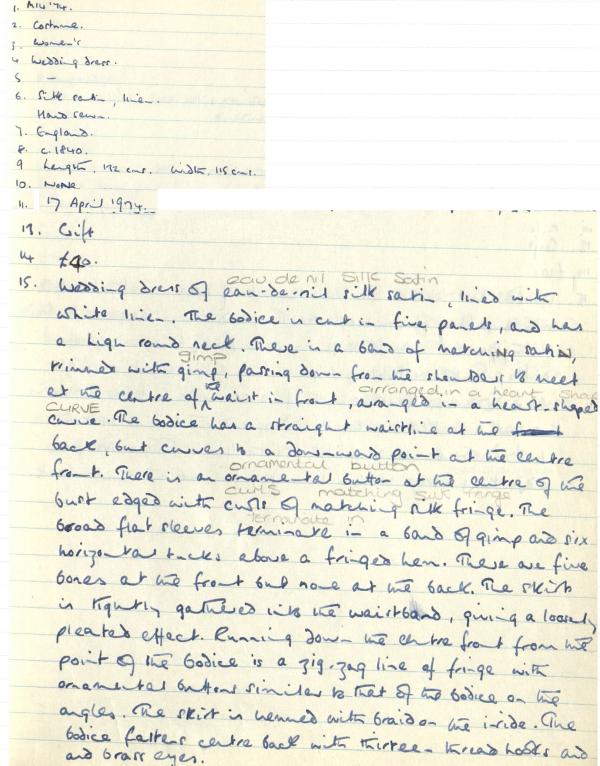 1. A14'74.
2. Costume.
3. Women's
4 Wedding dress.
5 —
6. Silk satin, linen.
Hand sewn.
7. England.
8. c.1840.
9 Length, 132 cms. Width, 115 cms.
10. NONE
11. 17 April 1974.
13. Gift
14 £40.
eau de nil silk satin
15. Wedding dress of eau-de-nil silk satin, lined with
white linen. The bodice is cut in five panels, and has
a high round neck. There is a band of matching satin,
gimp
trimmed with gimp, passing down from the shoulders to meet
arranged in a heart shap
at the centre of the waist in front, arranged in a heart-shaped
CURVE
curve. The bodice has a straight waistline at the front
back, but curves to a downward point at the centre
ornamental button
front. There is an ornamental button at the centre of the
curls matching silk fringe
bust edged with curls of matching silk fringe. The
terminate in
broad flat sleeves terminate in a band of gimp and six
horizontal tucks above a fringed hem. There are five
bones at the front but none at the back. The skirt
is tightly gathered into the waistband, giving a loosely
pleated effect. Running down the centre front from the
point of the bodice is a zig-zag line of fringe with
ornamental buttons similar to that of the bodice on the
angles. The skirt is hemmed with braid on the inside. The
bodice fastens centre back with thirteen thread hooks and
and brass eyes.